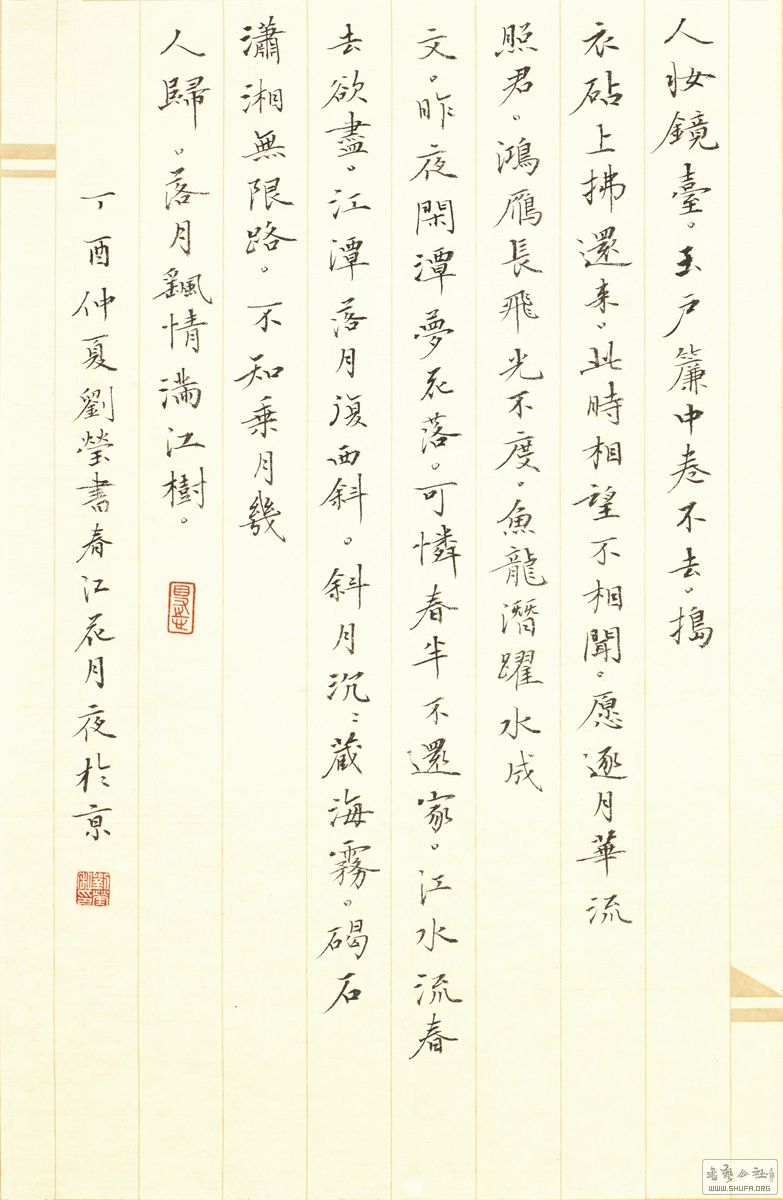 人妝鏡臺。玉戶簾中卷不去。搗
衣砧上拂還来。此時相望不相聞。愿逐月華流
照君。鴻雁長飛光不度。魚龍潛躍水成
文。昨夜閑潭夢花落。可憐春半不還家。江水流春
去欲盡。江潭落月復西斜。斜月沉〻藏海霧。碣石
瀟湘無限路。不知乘月幾
人歸。落月飖情滿江樹。
丁酉仲夏劉瑩書春江花月夜於京
書藝公社
WWW.SHUFA.ORG